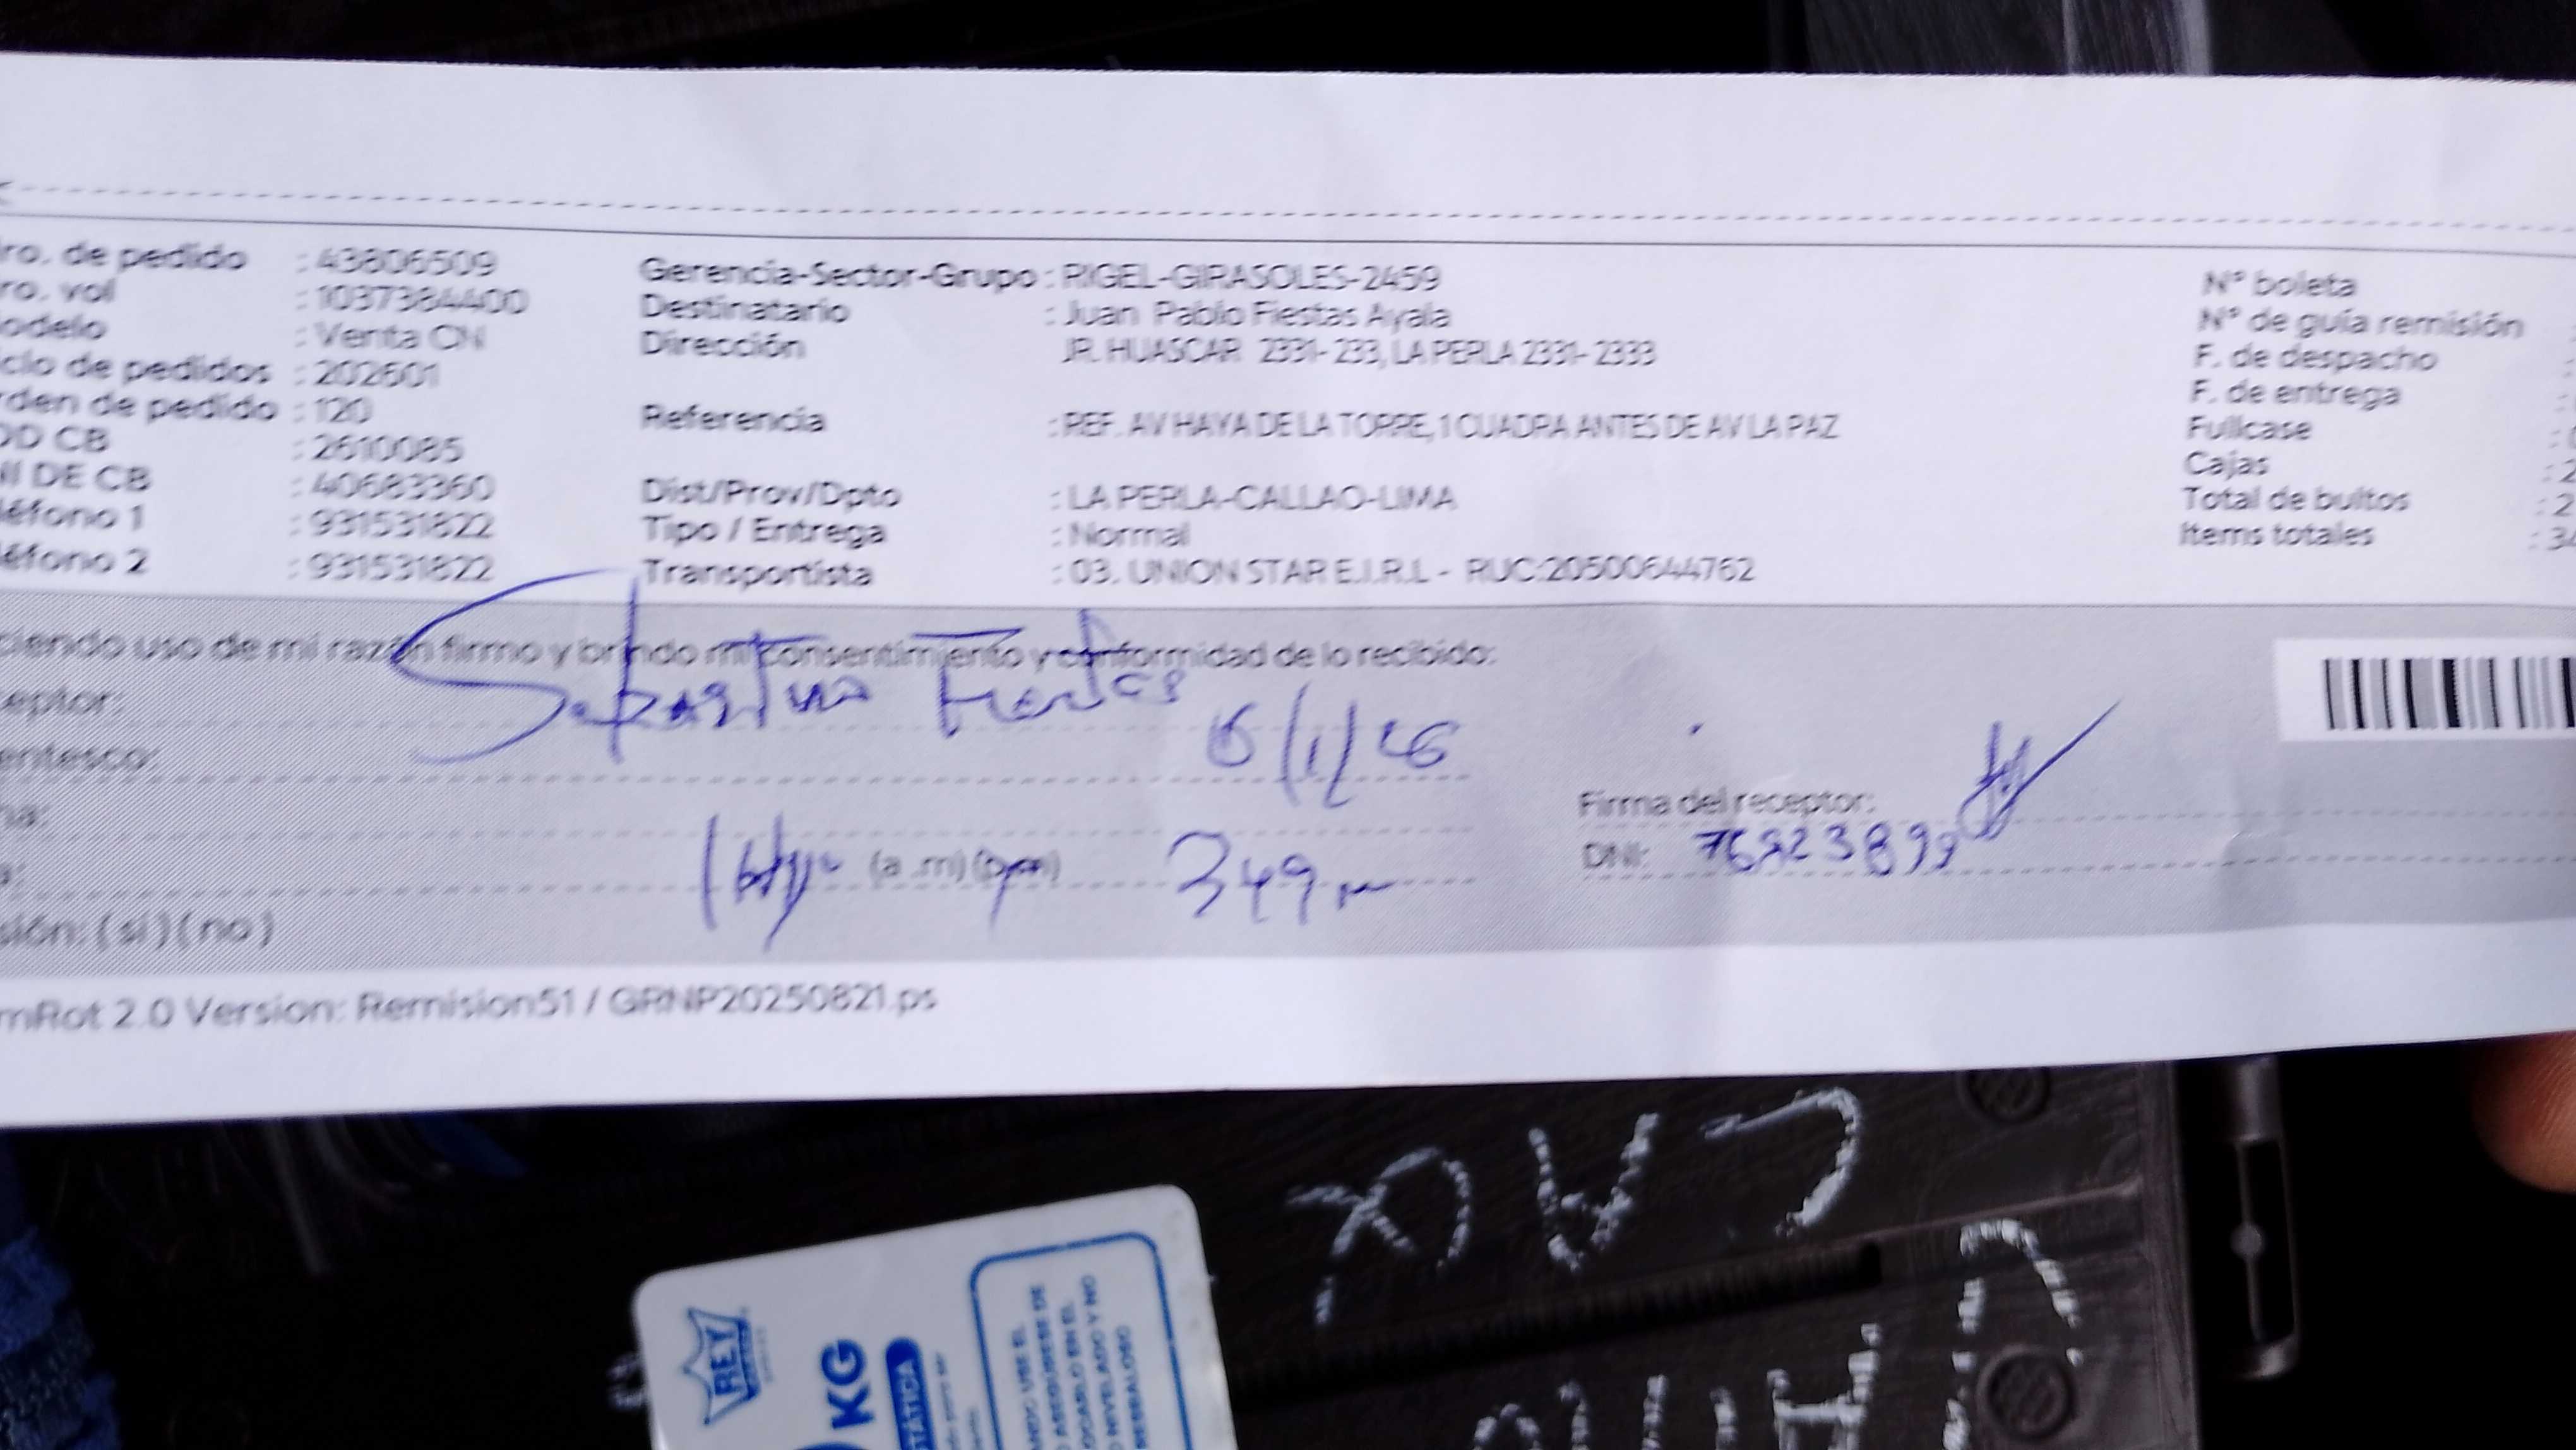 ro. de pedido : 43806509
ro. vol : 1037384400
odelo : Venta CN
iclo de pedidos : 202601
rden de pedido : 120
OD CB : 2610085
NI DE CB : 40683360
léfono 1 : 931531822
léfono 2 : 931531822
Gerencia-Sector-Grupo : RIGEL-GIRASOLES-2459
Destinatario : Juan Pablo Fiestas Ayala
Dirección JR. HUASCAR 2331-233, LA PERLA 2331-2333
Referencia : REF. AV HAYA DE LA TORRE, 1 CUADRA ANTES DE AV LA PAZ
Dist/Prov/Dpto : LA PERLA-CALLAO-LIMA
Tipo / Entrega : Normal
Transportista : 03. UNION STAR E.I.R.L - RUC:20500644762
N° boleta
N° de guía remisión
F. de despacho
F. de entrega
Fullcase
Cajas : 2
Total de bultos : 2
Items totales : 34
ciendo uso de mi razón firmo y brindo mi consentimiento y conformidad de lo recibido:
eptor: Sebastian Fiestas
entesco:
6/1/26
ha:
(a .m) (p.m) 349
a:
sión: (si) (no)
Firma del receptor:
DNI: 76923899
mRot 2.0 Version: Remision51 / GRNP20250821.ps
REY
KG
STÁTICA
ANDO USE EL
ASEGÚRESE DE
OCARLO EN EL
NIVELADO Y NO
RESBALOSO